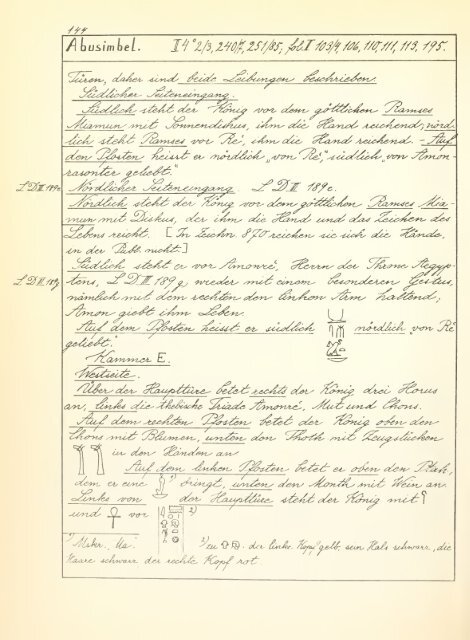 144
Abusimbel. II 4° 2/3, 240/7, 251/85; fol. II 103/4, 106, 110, 111, 113, 195.
Türen, daher sind beide Leibungen beschrieben.
Südlicher Seiteneingang.
Südlich steht der König vor dem göttlichen Ramses
Miamun mit Sonnendiskus, ihm die Hand reichend, nörd-
lich steht Ramses vor Re', ihm die Hand reichend – Auf
den Pfosten heisst er nördlich „von Re'", südlich „von Amon-
rasonter geliebt."
L. D. III. 189e. Nördlicher Seiteneingang L. D. III 189e.
Nördlich steht der König vor dem göttlichen Ramses Mia-
mun mit Diskus, der ihm die Hand und das Zeichen des
Lebens reicht. [In Zeichn. 870 reichen sie sich die Hände,
in der Publ. nicht.]
Südlich steht er vor Amonre', Herrn der Throne Aegyp-
L. D. III. 189g tens, L. D. III. 189g wieder mit einem besonderen Gestus,
nämlich mit dem rechten den linken Arm haltend;
Amon giebt ihm Leben.
Auf dem Pfosten heisst er südlich nördlich „von Re'
geliebt."
Kammer E.
Westseite.
Über der Haupttüre betet rechts der König drei Horus
an, links die thebische Triade Amonre', Mut und Chons.
Auf dem rechten Pfosten betet der König oben den
Chons mit Blumen, unten den Thoth mit Zeugstücken
in den Händen an
Auf dem linken Pfosten betet er oben den Ptah,
dem er eine bringt, unten den Month mit Wein an.
Links von der Haupttüre steht der König mit
und vor 2)
2) zu der linke Kopf gelb, sein Hals schwarz, die
Haare schwarz der rechte Kopf rot